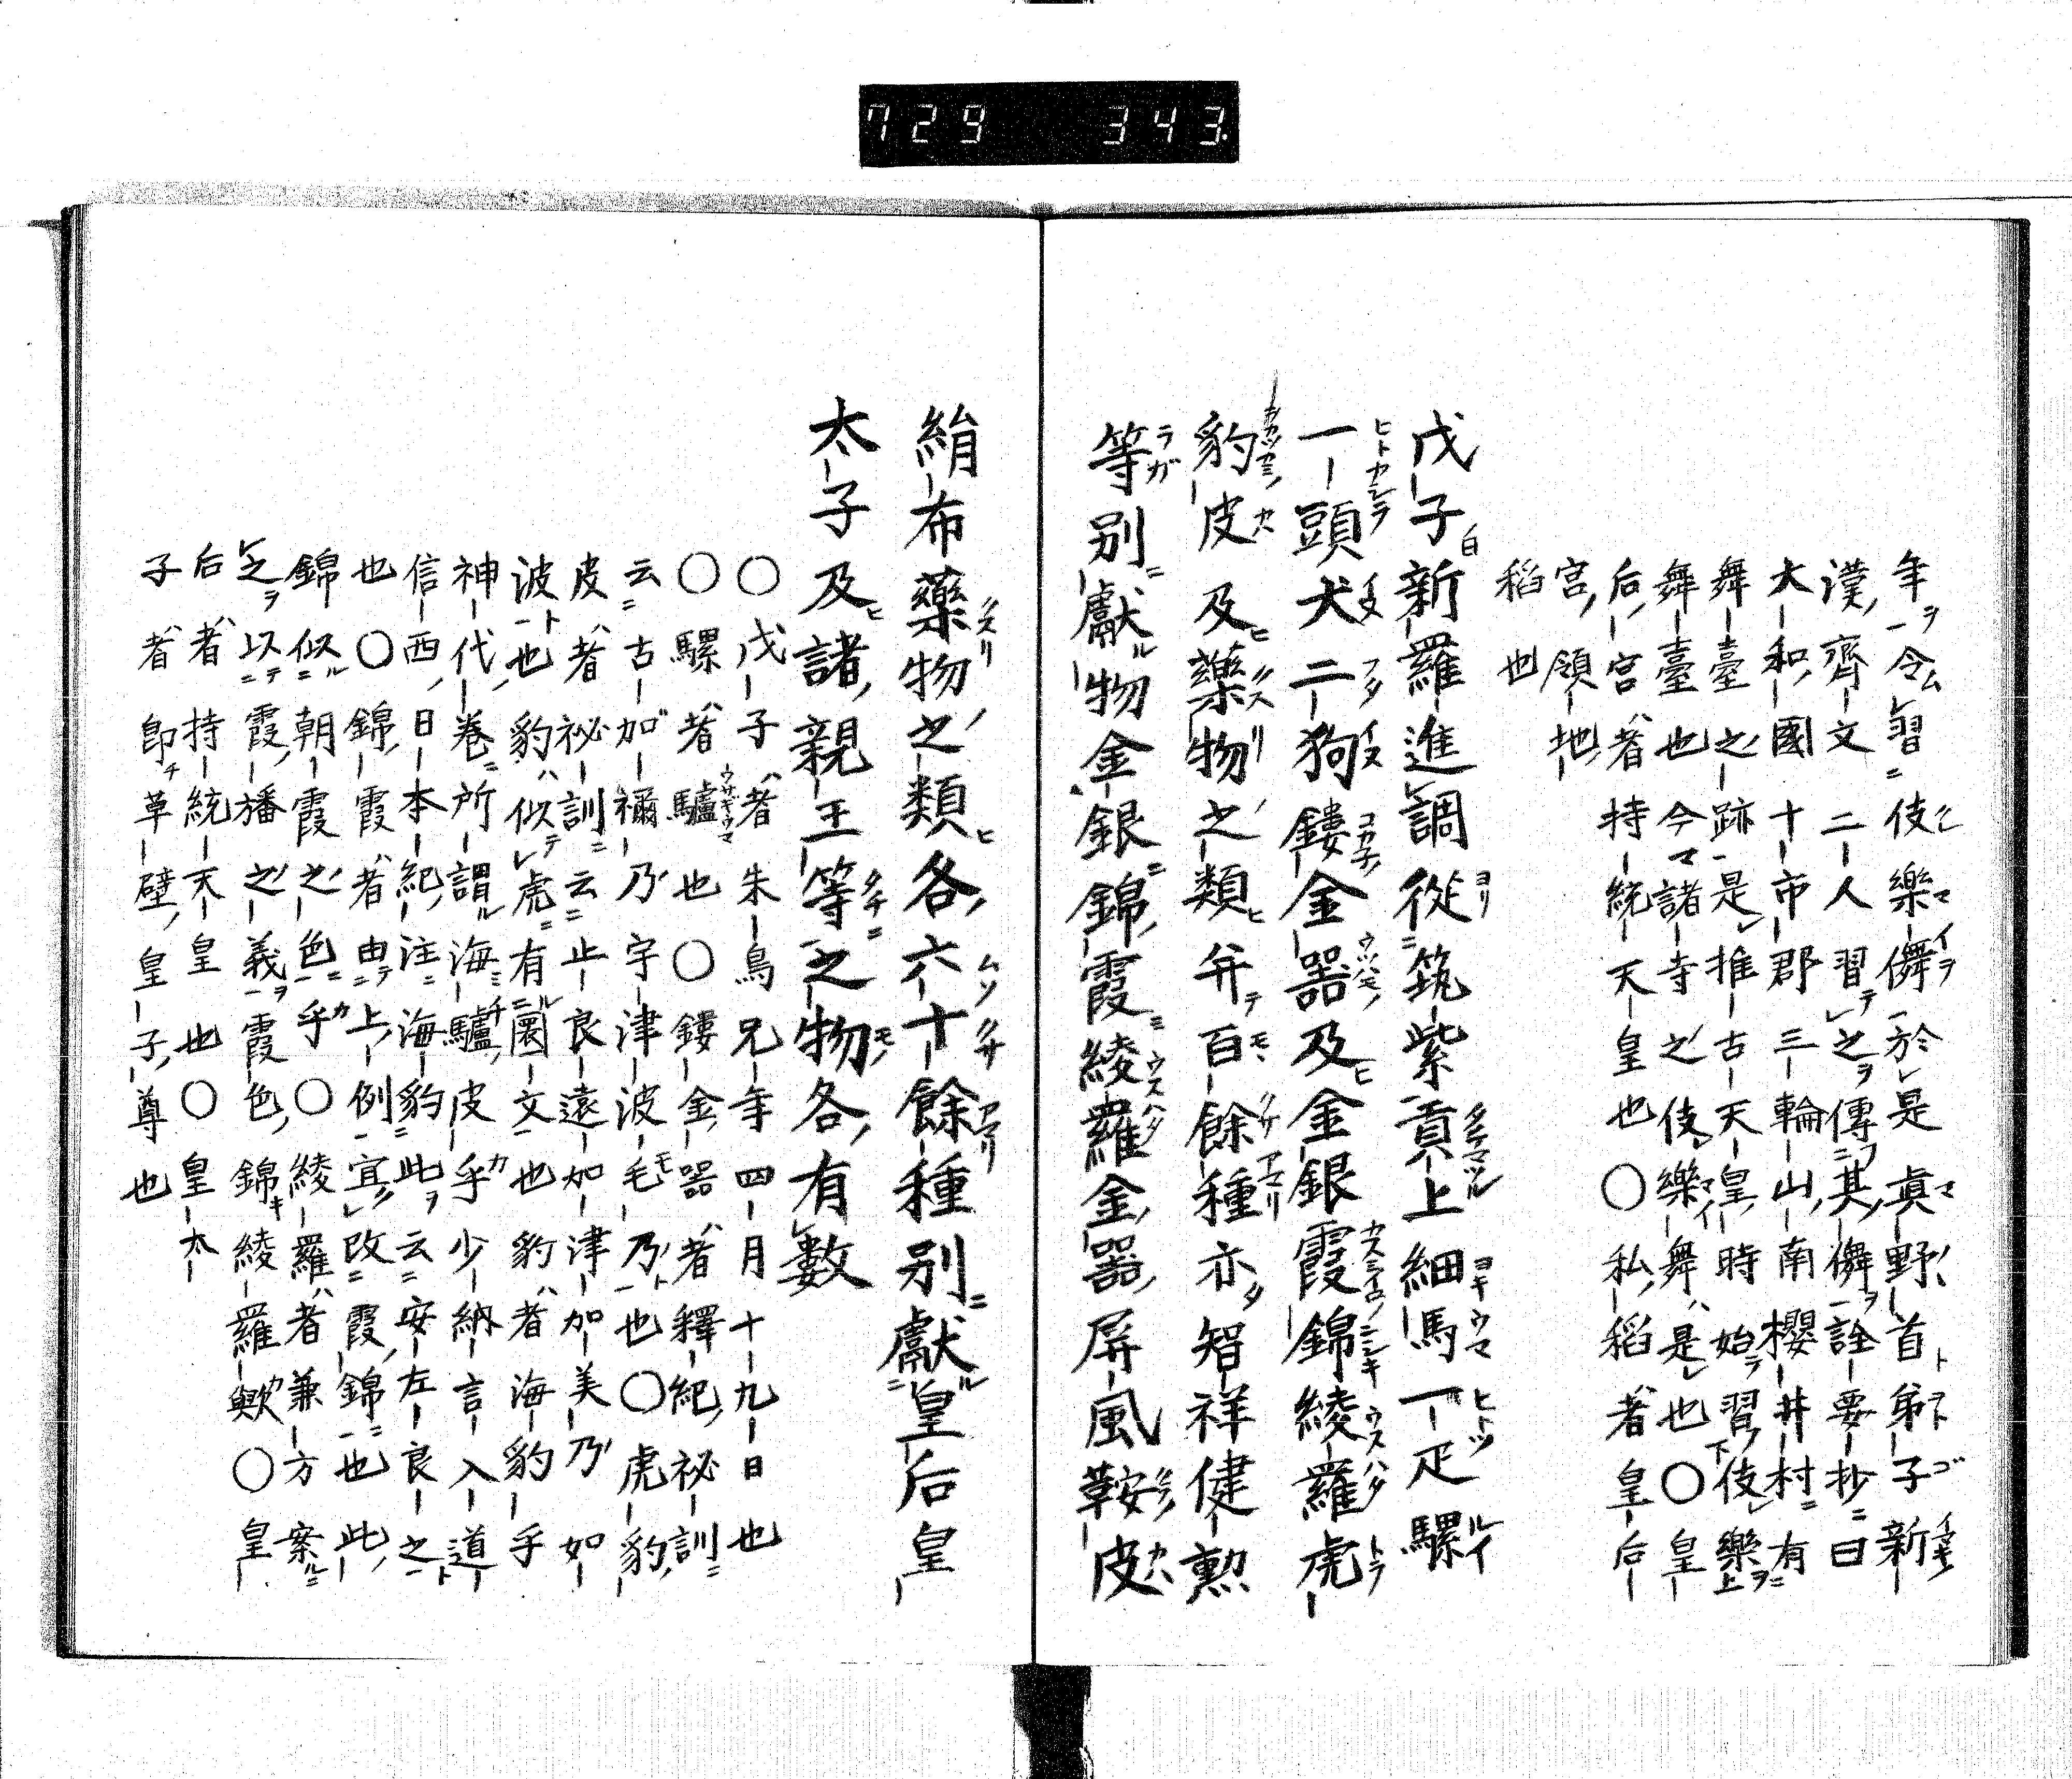 729 343.
年令習伎樂儛於是眞野首弟子新
漢齊文二人習之傳其儛詮要抄曰
大和國十市郡三輪山南櫻井村有
舞臺之跡是推古天皇時始習伎樂
舞臺也今諸寺之伎樂舞是也〇皇
后宮者持統天皇也〇私稻者皇后
宮領地
稻也
戊子新羅進調從筑紫貢上細馬一疋騾
一頭犬二狗鏤金器及金銀霞錦綾羅虎
豹皮及藥物之類幷百餘種亦智祥健勲
等別獻物金銀錦霞綾羅金器屏風鞍皮
絹布藥物之類各六十餘種別獻皇后皇
太子及諸親王等之物各有數
〇戊子者朱鳥兄年四月十九日也
〇騾者驢也〇鏤金器者釋紀祕訓
云古加禰乃宇津波毛乃也〇虎豹
皮者祕訓云止良遠加津加美乃如
波也豹似虎有圜文也豹者海豹乎
神代卷所謂海驢皮乎少納言入道
信西日本紀注海豹此云安左良之
也〇錦霞者由上例宜改霞錦也此
錦似朝霞之色乎〇綾羅者兼方案
之以霞旛之義霞色錦綾羅歟〇皇
后者持統天皇也〇皇太
子者卽草壁皇子尊也